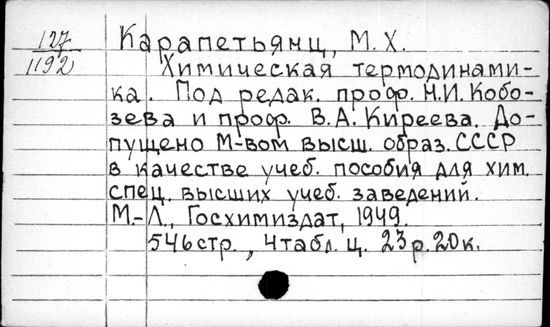 127
1192
Карапетьянц, М.Х.
Химическая термодинами-
ка. Под редак. проф. Н.И. Кобо-
зева и проф. В.А. Киреева. До-
пущено М-вом высш. образ. СССР
в качестве учеб. пособия для хим.
спец. высших учеб. заведений.
М.-Л., Госхимиздат, 1949.
546 стр., 4 табл. ц. 23 р. 20 к.